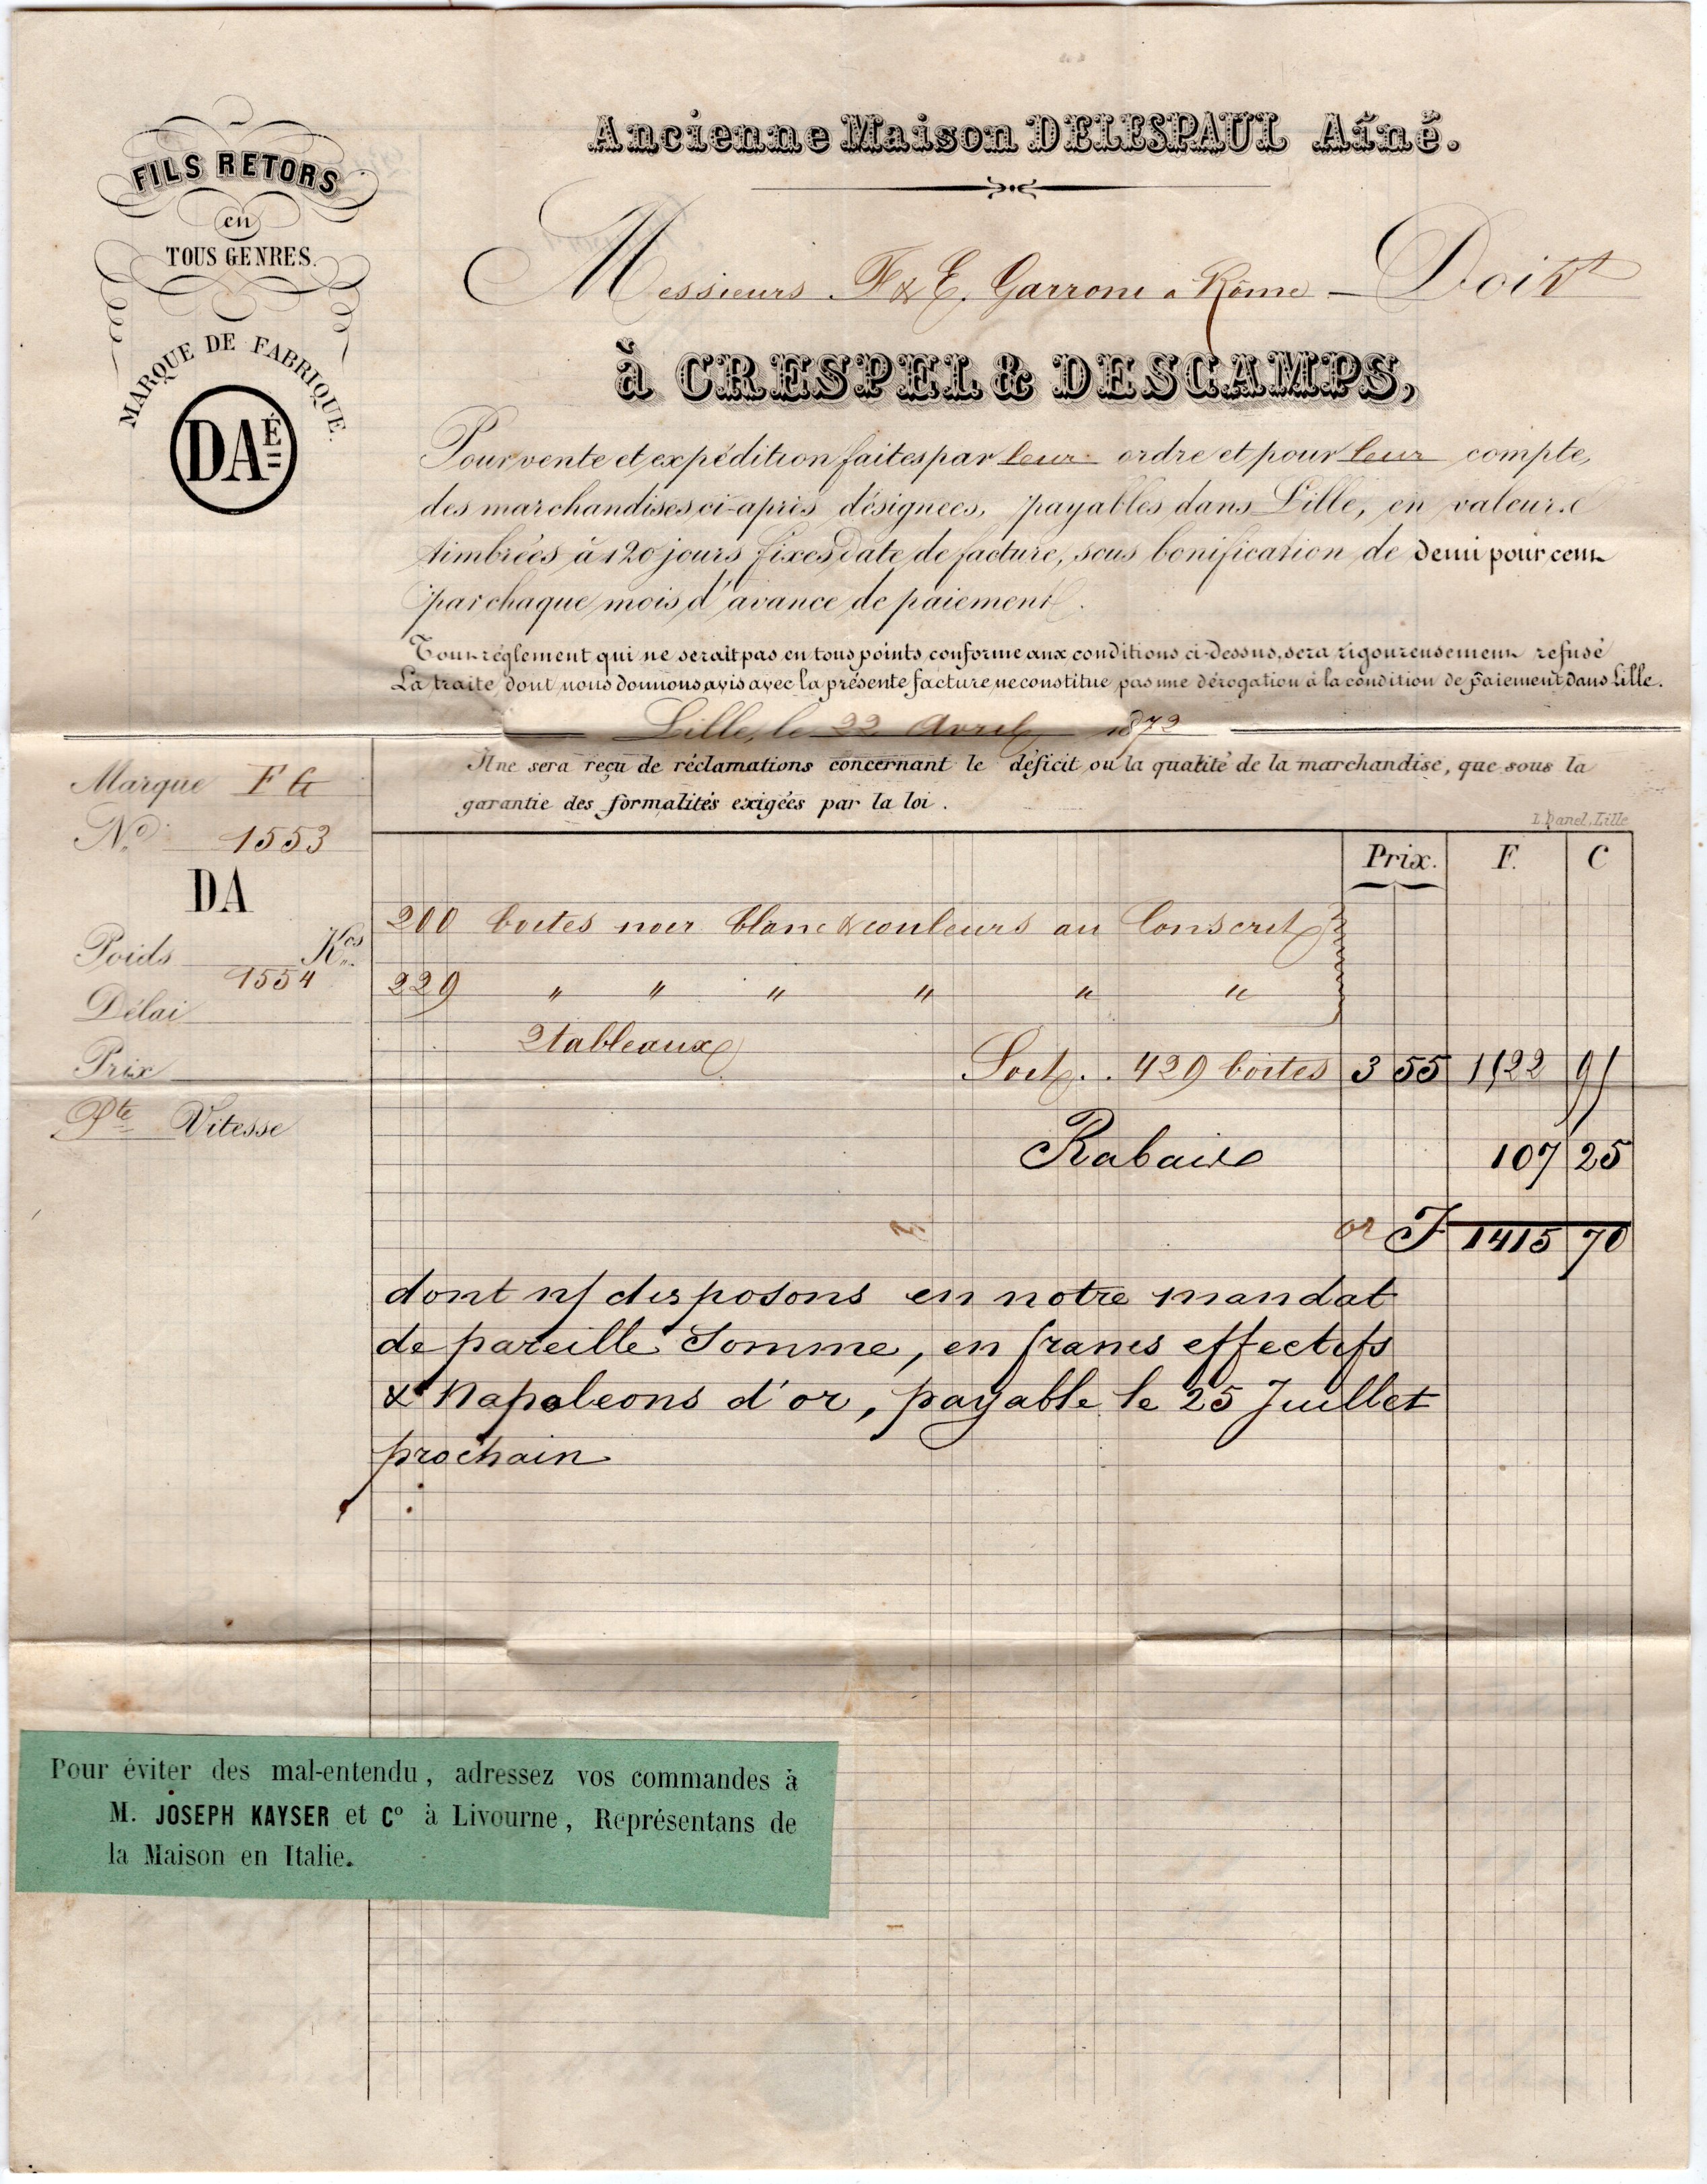 Ancienne Maison DELESPAUL Aîné.
FILS RETORS
en
TOUS GENRES.
MARQUE DE FABRIQUE.
DAÉ
Messieurs F & E. Garroni a Rome - Doivt
à CRESPEL & DESCAMPS,
Pour vente et expédition faites par leur ordre et pour leur compte,
des marchandises ci-après désignées, payables dans Lille, en valeurs
timbrées à 120 jours fixes date de facture, sous bonification de demi pour cent
par chaque mois d'avance de paiement.
Tout règlement qui ne serait pas en tous points conforme aux conditions ci-dessus, sera rigoureusement refusé
La traite, dont nous donnons avis avec la présente facture, ne constitue pas une dérogation à la condition de paiement dans Lille.
Lille, le 22 Avril 1872
Il ne sera reçu de réclamations concernant le déficit ou la qualité de la marchandise, que sous la
garantie des formalités exigées par la loi.
L. Danel, Lille
Marque FG
No. 1553
DA
Poids Kos
1554
Délai
Prix
Pte Vitesse
Prix. F. C
200 boites noir blanc & couleurs au Conscrit
229 " " " " " "
2 tableaux
Soit . . 429 boites 3 55 1522 95
Rabais 107 25
or F 1415 70
dont n/ disposons en notre mandat
de pareille Somme, en francs effectifs
& Napoleons d'or, payable le 25 Juillet
prochain
Pour éviter des mal-entendu, adressez vos commandes à
M. JOSEPH KAYSER et Co à Livourne, Représentans de
la Maison en Italie.